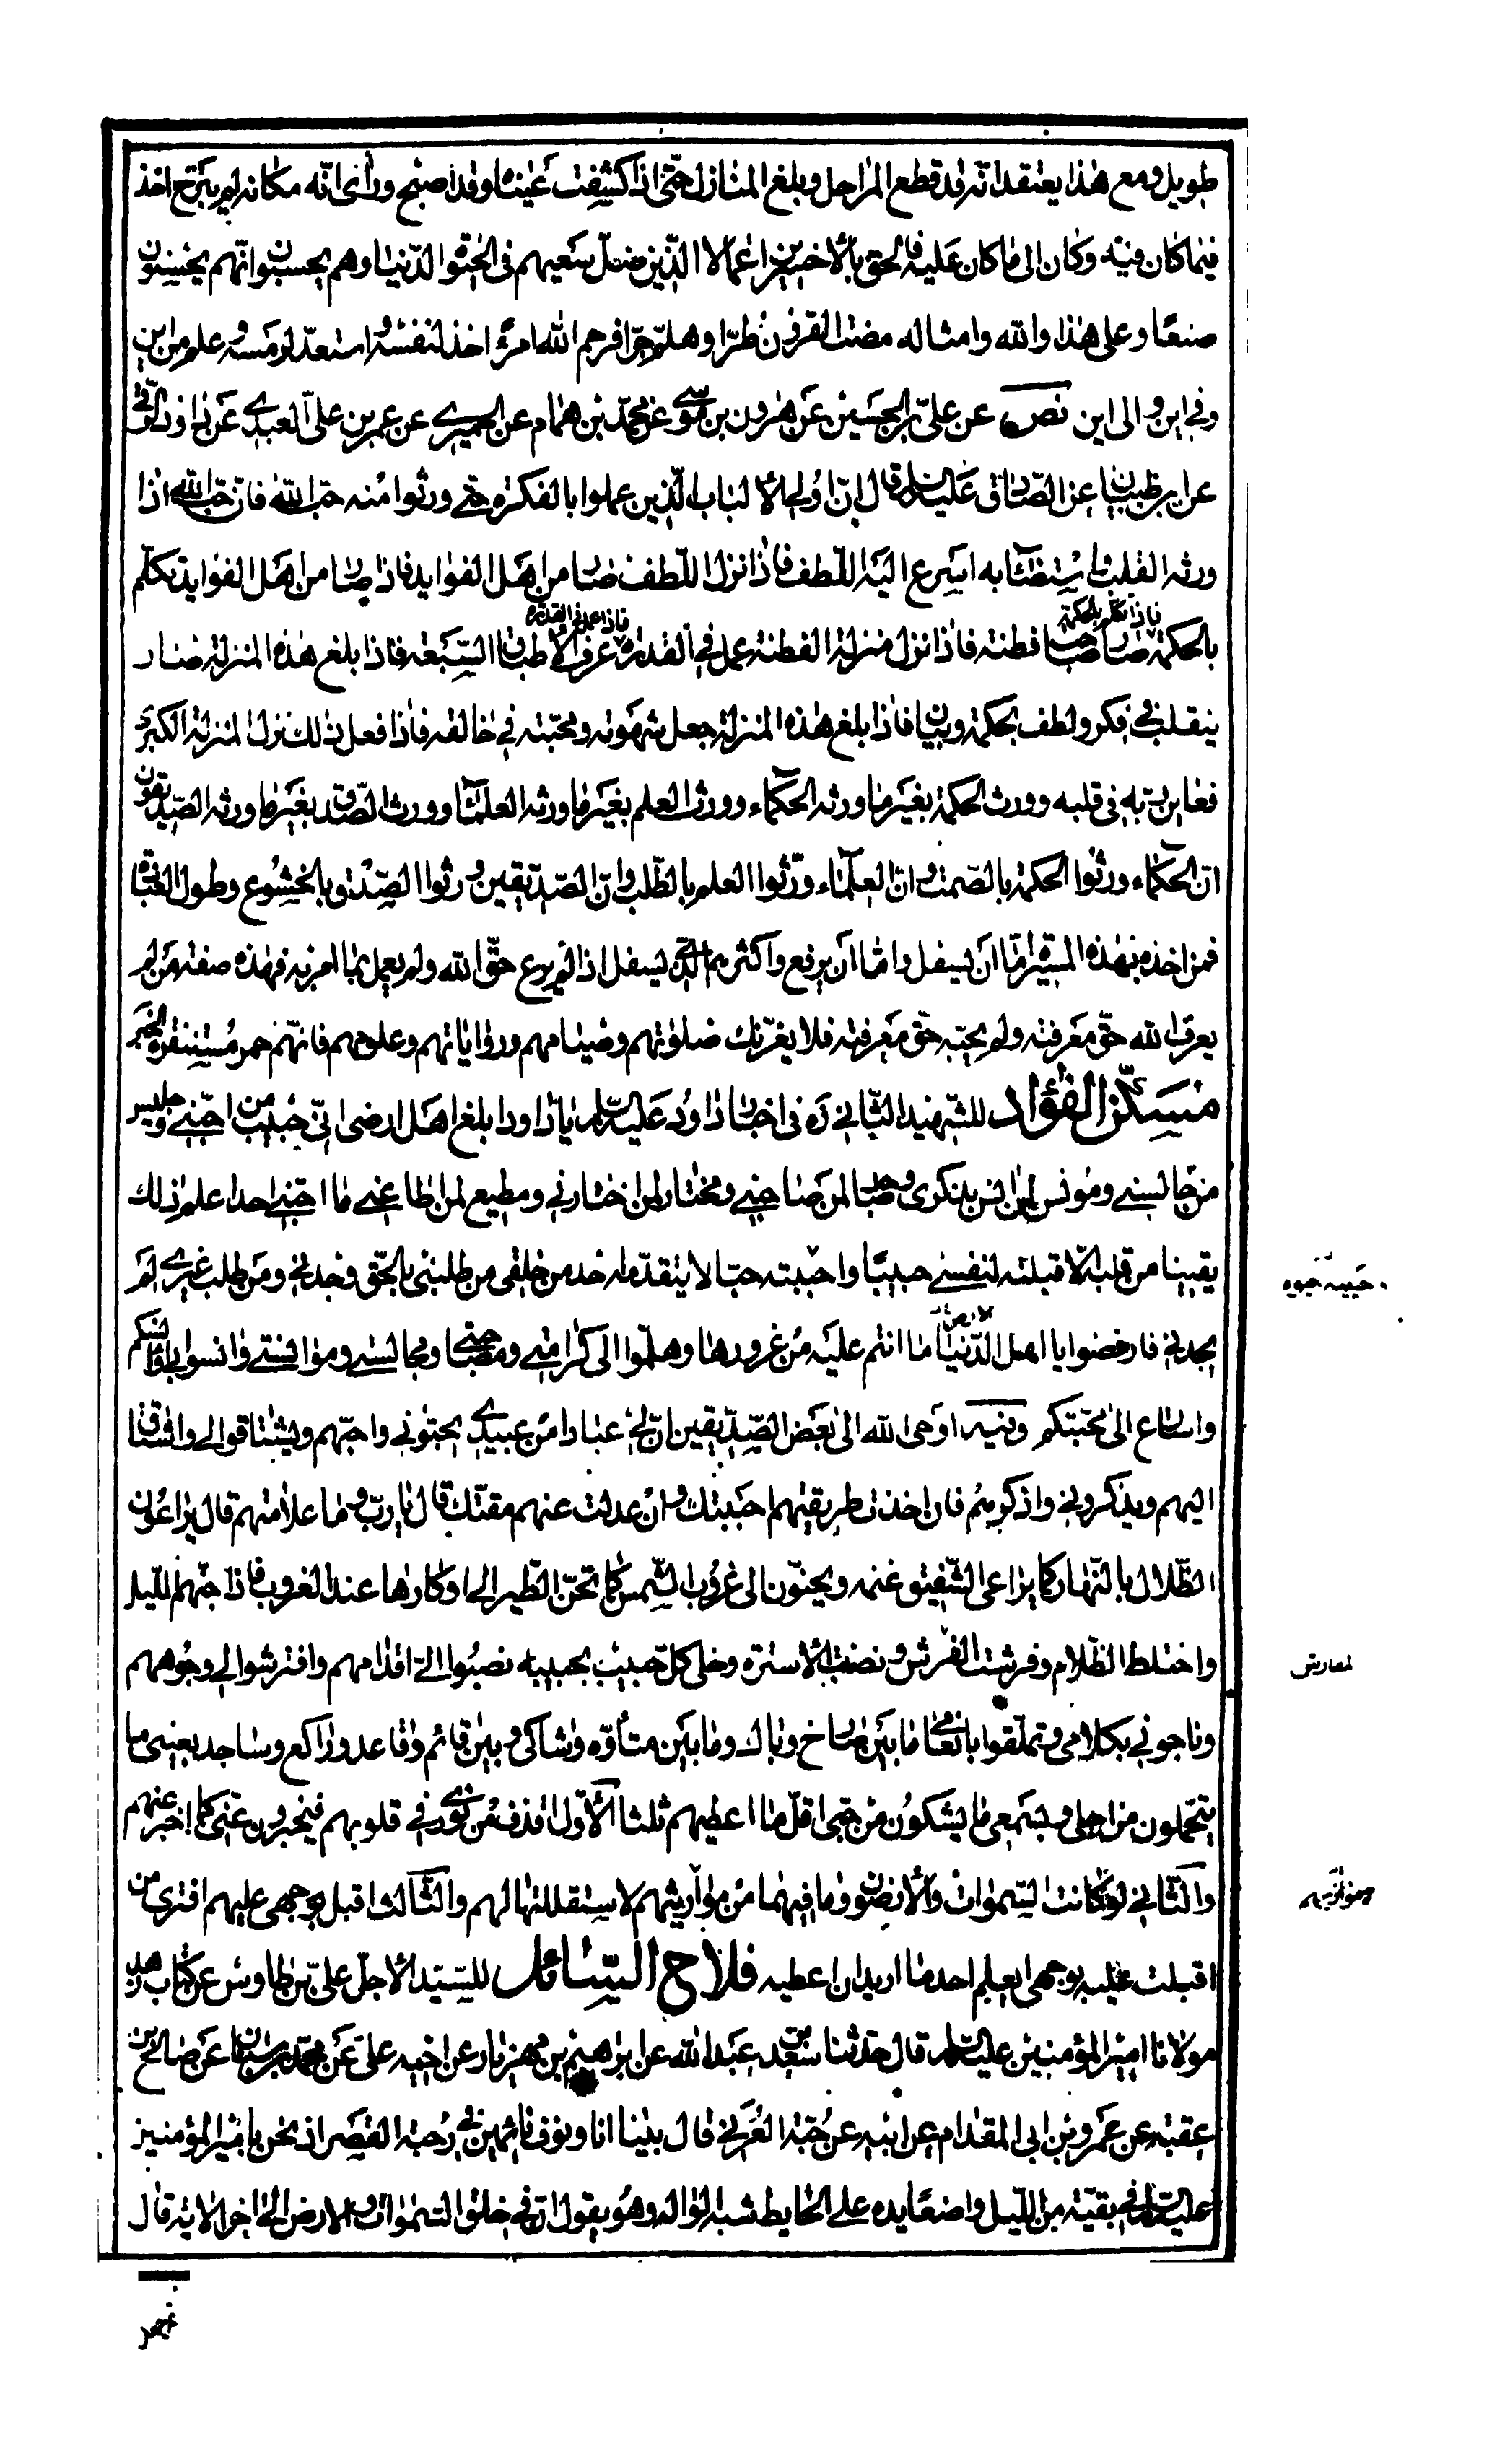 طويل ومع هذا يعتقد انّه قد قطع المراحل وبلغ المنازل حتّى اذا كشفت عيناه وقد اصبح وراى انّه مكانه لم يبرح اخذ
فيما كان فيه وكان الى ما كان عليه فالحق بالاخسرين اعمالا الّذين ضلّ سعيهم فى الحيوة الدّنيا وهم يحسبون انّهم يحسنون
صنعًا وعلى هذا والله وامثاله مضت القرون طرّا وهلمّ جرّا فرحم الله امرءً اخذ لنفسه واستعدّ لرمسه وعلم من اين
وفى اين والى اين نص عن علىّ بن الحسين عن هرون بن موسى عن محمّد بن همام عن الحميرى عن عمر بن علىّ العبدى عن داود الرّقّى
عن ابن ظبيان عن الصّادق عليه السلام قال انّ اولى الالباب الّذين عملوا بالفكرة حتّى ورثوا منه حبّ الله فانّ حبّ الله اذا
ورثه القلب واستضاء به اسرع اليه اللّطف فاذا نزل اللّطف صار من اهل الفوايد فاذا صار من اهل الفوايد تكلّم
بالحكمة فاذا تكلّم بالحكمة صار صاحب فطنة فاذا نزل منزلة الفطنة عمل فى القدرة فاذا عمل فى القدرة عرف الاطباق السّبعة فاذا بلغ هذه المنزلة صار
يتقلّب فى فكر ولطف بحكمة وبيان فاذا بلغ هذه المنزلة جعل شهوته ومحبّته فى خالقه فاذا فعل ذلك نزل المنزلة الكبرى
فعاين ربّه فى قلبه وورث الحكمة بغير ما ورثه الحكماء وورث العلم بغير ما ورثه العلماء وورث الصّدق بغير ما ورثه الصّدّيقون
انّ الحكماء ورثوا الحكمة بالصّمت وانّ العلماء ورّثوا العلم بالطّلب وانّ الصّدّيقين ورثوا الصّدق بالخشوع وطول العبادة
فمن اخذه بهذه المسيرة امّا ان يسفل وامّا ان يرفع واكثرهم الّذى يسفل اذا لم يرع حقّ الله ولم يعمل بما امر به فهذه صفة من لم
يعرف الله حقّ معرفته ولم يحبّه حقّ معرفته فلا يغرّنك صلوتهم وصيامهم ورواياتهم وعلومهم فانّهم حمر مستنفرة الخبر
مسكّن الفؤاد للشّهيد الثّانى ره فى اخبار داود عليه السلام يا داود ابلغ اهل ارضى انّى حبيب من احبّنى وجليس
من جالسنى ومونس لمن انس بذكرى وصاحب لمن صاحبنى ومختار لمن اختارنى ومطيع لمن اطاعنى ما احبّنى احد اعلم ذلك
يقينا من قلبه الّا قبلته لنفسى حبيبًا واحببته حبّا لا يتقدّمه احد من خلقى من طلبنى بالحقّ وجدنى ومن طلب غيرى لم
يجدنى فارفضوا يا اهل الدّنيا ما انتم عليه من غرورها وهلمّوا الى كرامتى ومصاحبتى ومجالستى وموانستى وانسوا بى اوانسكم
واسارع الى محبّتكم وفيه اوحى الله الى بعض الصّدّيقين انّ لى عبادا من عبيدى يحبّونى واحبّهم ويشتاقون الى واشتاق
اليهم ويذكرونى واذكرهم فان اخذت طريقتهم احببتك وان عدلت عنهم مقتّك قال يا ربّ وما علامتهم قال يراعون
الظّلال بالنّهار كما يراعى الشّفيق غنمه ويحنّون الى غروب الشّمس كما تحنّ الطّير الى اوكارها عند الغروب فاذا جنّهم اللّيل
واختلط الظّلام وفرشت الفرش ونصبت الاسترة وخلى كلّ حبيب بحبيبه نصبوا الىّ اقدامهم وافترشوا لى وجوههم
وناجونى بكلامى وتملّقوا بانعامى ما بين صارخ وباك وما بين متأوّه وشاكى وبين قائم وقاعد وراكع وساجد بعينى ما
يتحمّلون من اجلى وبسمعى ما يشكون من حبّى اقلّ ما اعطيهم ثلثا الاوّل اقذف من نورى فى قلوبهم فيخبرون عنّى كما اخبر عنهم
والثّانى لو كانت السّموات والارضون وما فيهما من مواريثهم لاستقللتها لهم والثّالث اقبل بوجهى عليهم افترى من
اقبلت عليه بوجهى ايعلم احد ما اريد ان اعطيه فلاح السّائل للسّيّد الاجلّ علىّ بن طاوس عن كتاب زهد
مولانا امير المؤمنين عليه السلام قال حدّثنا سعد بن عبد الله عن ابراهيم بن مهزيار عن اخيه على عن محمّد بن سنان عن صالح بن
عقبة عن عمرو بن ابى المقدام عن ابيه عن حبّة العرنى قال بينا انا ونوف نائمين فى رحبة القصر اذ نحن بامير المؤمنين
عليه السلام فى بقيّة من اللّيل واضعًا يده على الحايط شبه الواله وهو يقول انّ فى خلق السّموات والارض الى اخر الاية قال
معارض
موازينهم
ثمّ